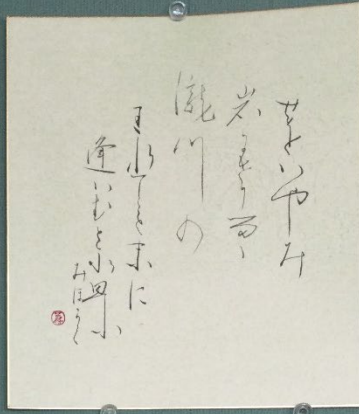 せをはやみ
岩にせかるゝ
瀧川の
われても末に
逢はむとぞ思ふ